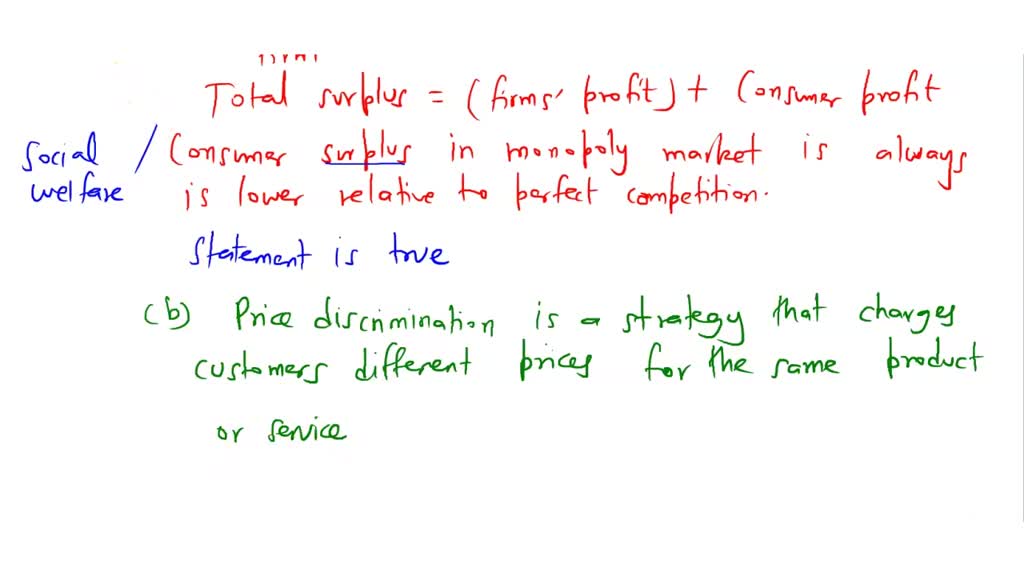 Total surplus = (firms' profit) + Consumer profit
Social / Consumer surplus in monopoly market is always
welfare is lower relative to perfect competition.
Statement is true
(b) Price discrimination is a strategy that charges
customers different prices for the same product
or service